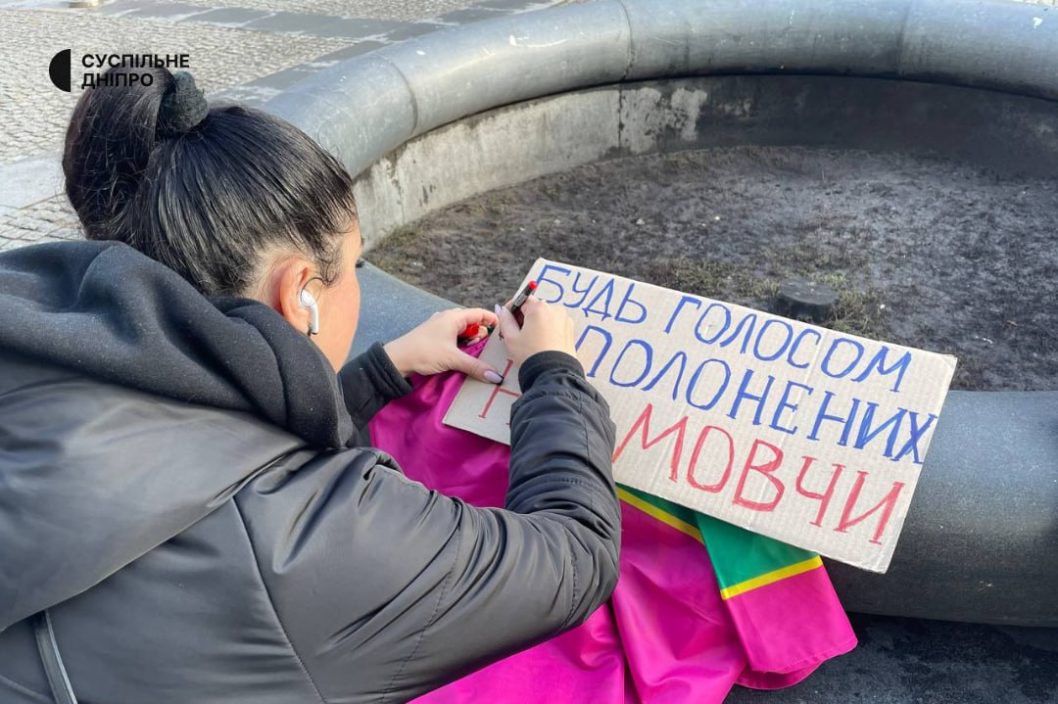 СУСПІЛЬНЕ
ДНІПРО
БУДЬ ГОЛОСОМ
ПОЛОНЕНИХ
МОВЧИ